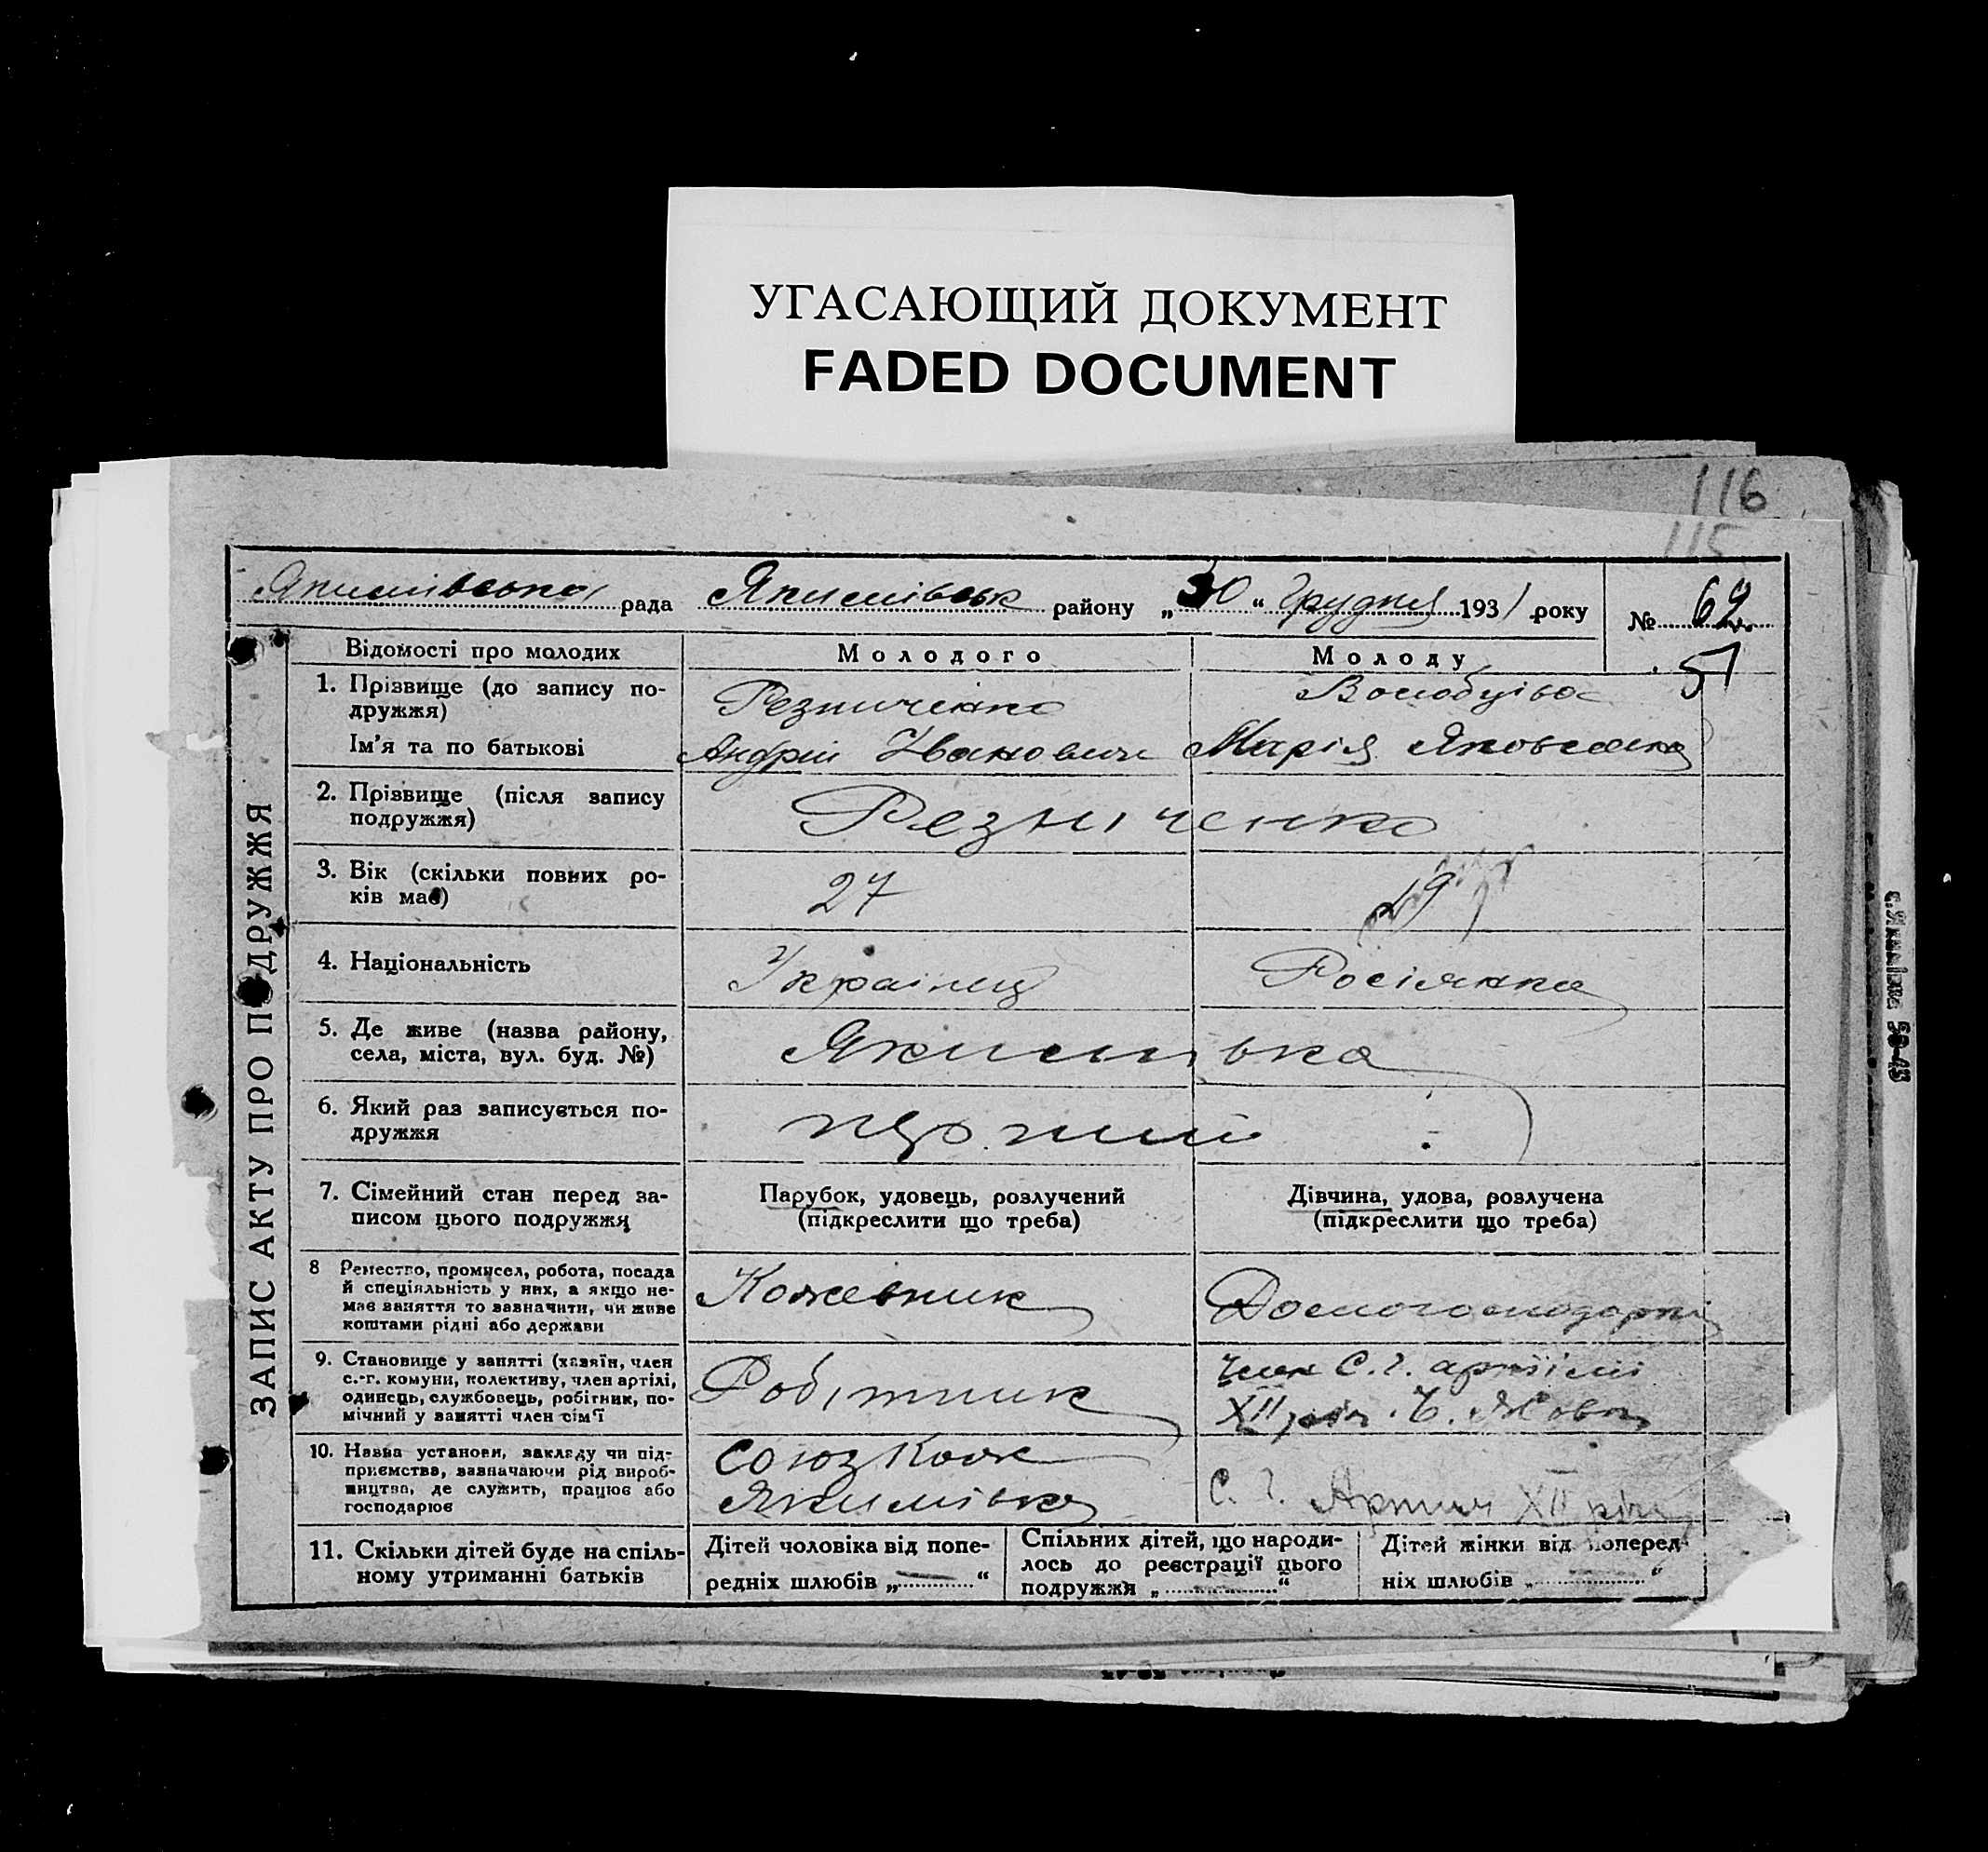 УГАСАЮЩИЙ ДОКУМЕНТ
FADED DOCUMENT
116
115
Якимівська рада Якимівськ району „30“ Грудня 1931 року № 62
51
ЗАПИС АКТУ ПРО ПОДРУЖЖЯ
Відомості про молодих
Молодого
Молоду
1. Прізвище (до запису по-
дружжя)
Резниченко
Ім'я та по батькові
Андрій Іванович
Марія Яковлевна
2. Прізвище (після запису
подружжя)
Резниченко
3. Вік (скільки повних ро-
ків має)
27
19
4. Національність
Українець
Росіянка
5. Де живе (назва району,
села, міста, вул. буд. №)
Якимівка
6. Який раз записується по-
дружжя
7. Сімейний стан перед за-
писом цього подружжя
Парубок, удовець, розлучений
(підкреслити що треба)
Дівчина, удова, розлучена
(підкреслити що треба)
8 Ремество, промисел, робота, посада
й спеціяльність у них, а якщо не-
має заняття то зазначити, чи живе
коштами рідні або держави
Кожевник
Домогосподарка
9. Становище у занятті (хазяїн, член
с.-г. комуни, колективу, член артілі,
одинець, службовець, робітник, по-
мічний у занятті член сім'ї
Робітник
Член С. г. артілі
XII річ. Ч. Жовт.
10. Назва установи, закладу чи під-
приємства, зазначаючи рід вироб-
ництва, де служить, працює або
господарює
Союзкож
Якимівка
С. г. Артіл XII річ
11. Скільки дітей буде на спіль-
ному утриманні батьків
Дітей чоловіка від попе-
редніх шлюбів „ “
Спільних дітей, що народи-
лось до реєстрації цього
подружжя „ “
Дітей жінки від поперед-
ніх шлюбів „ “